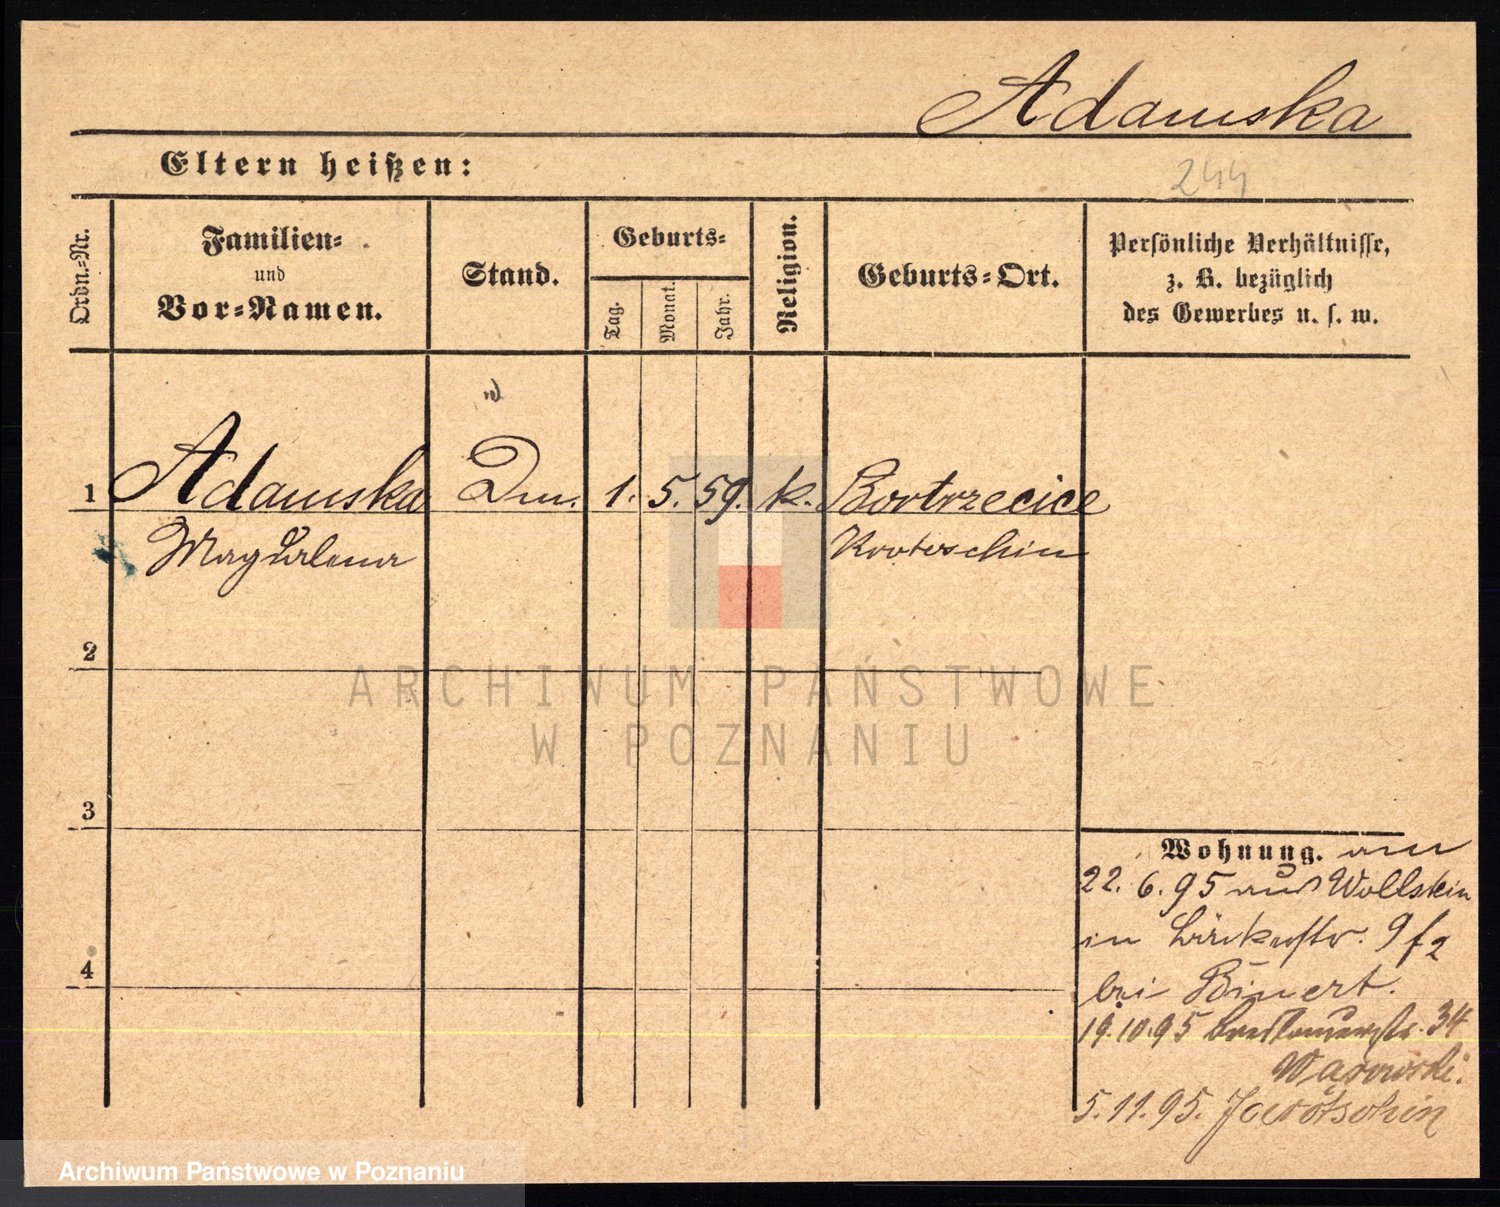 Adamska
Eltern heißen:
244
Ordn.-Nr.
Familien-
und
Vor-Namen.
Stand.
Geburts-
Tag.
Monat.
Jahr.
Religion.
Geburts-Ort.
Persönliche Verhältnisse,
z. B. bezüglich
des Gewerbes u. s. w.
1 Adamska 1. 5. 59. k. Bortrzecice
Magdalena Krotoschin
2
3
4
Wohnung. am
22. 6. 95 aus Wollstein
in Bäckerstr. 9
bei Binert.
19.10.95 Breslauerstr. 34
5.11.95.
ARCHIWUM PAŃSTWOWE
W POZNANIU
Archiwum Państwowe w Poznaniu